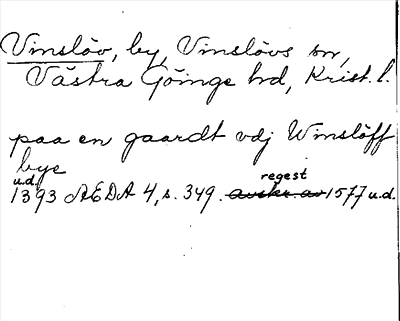 Vinslöv, by, Vinslövs sn,
Västra Göinge hd, Krist. l.
paa en gaardt vdj Winslöff
bye
u.d. regest
1393 ÆDA 4, s. 349. avskr. av 1577 u.d.